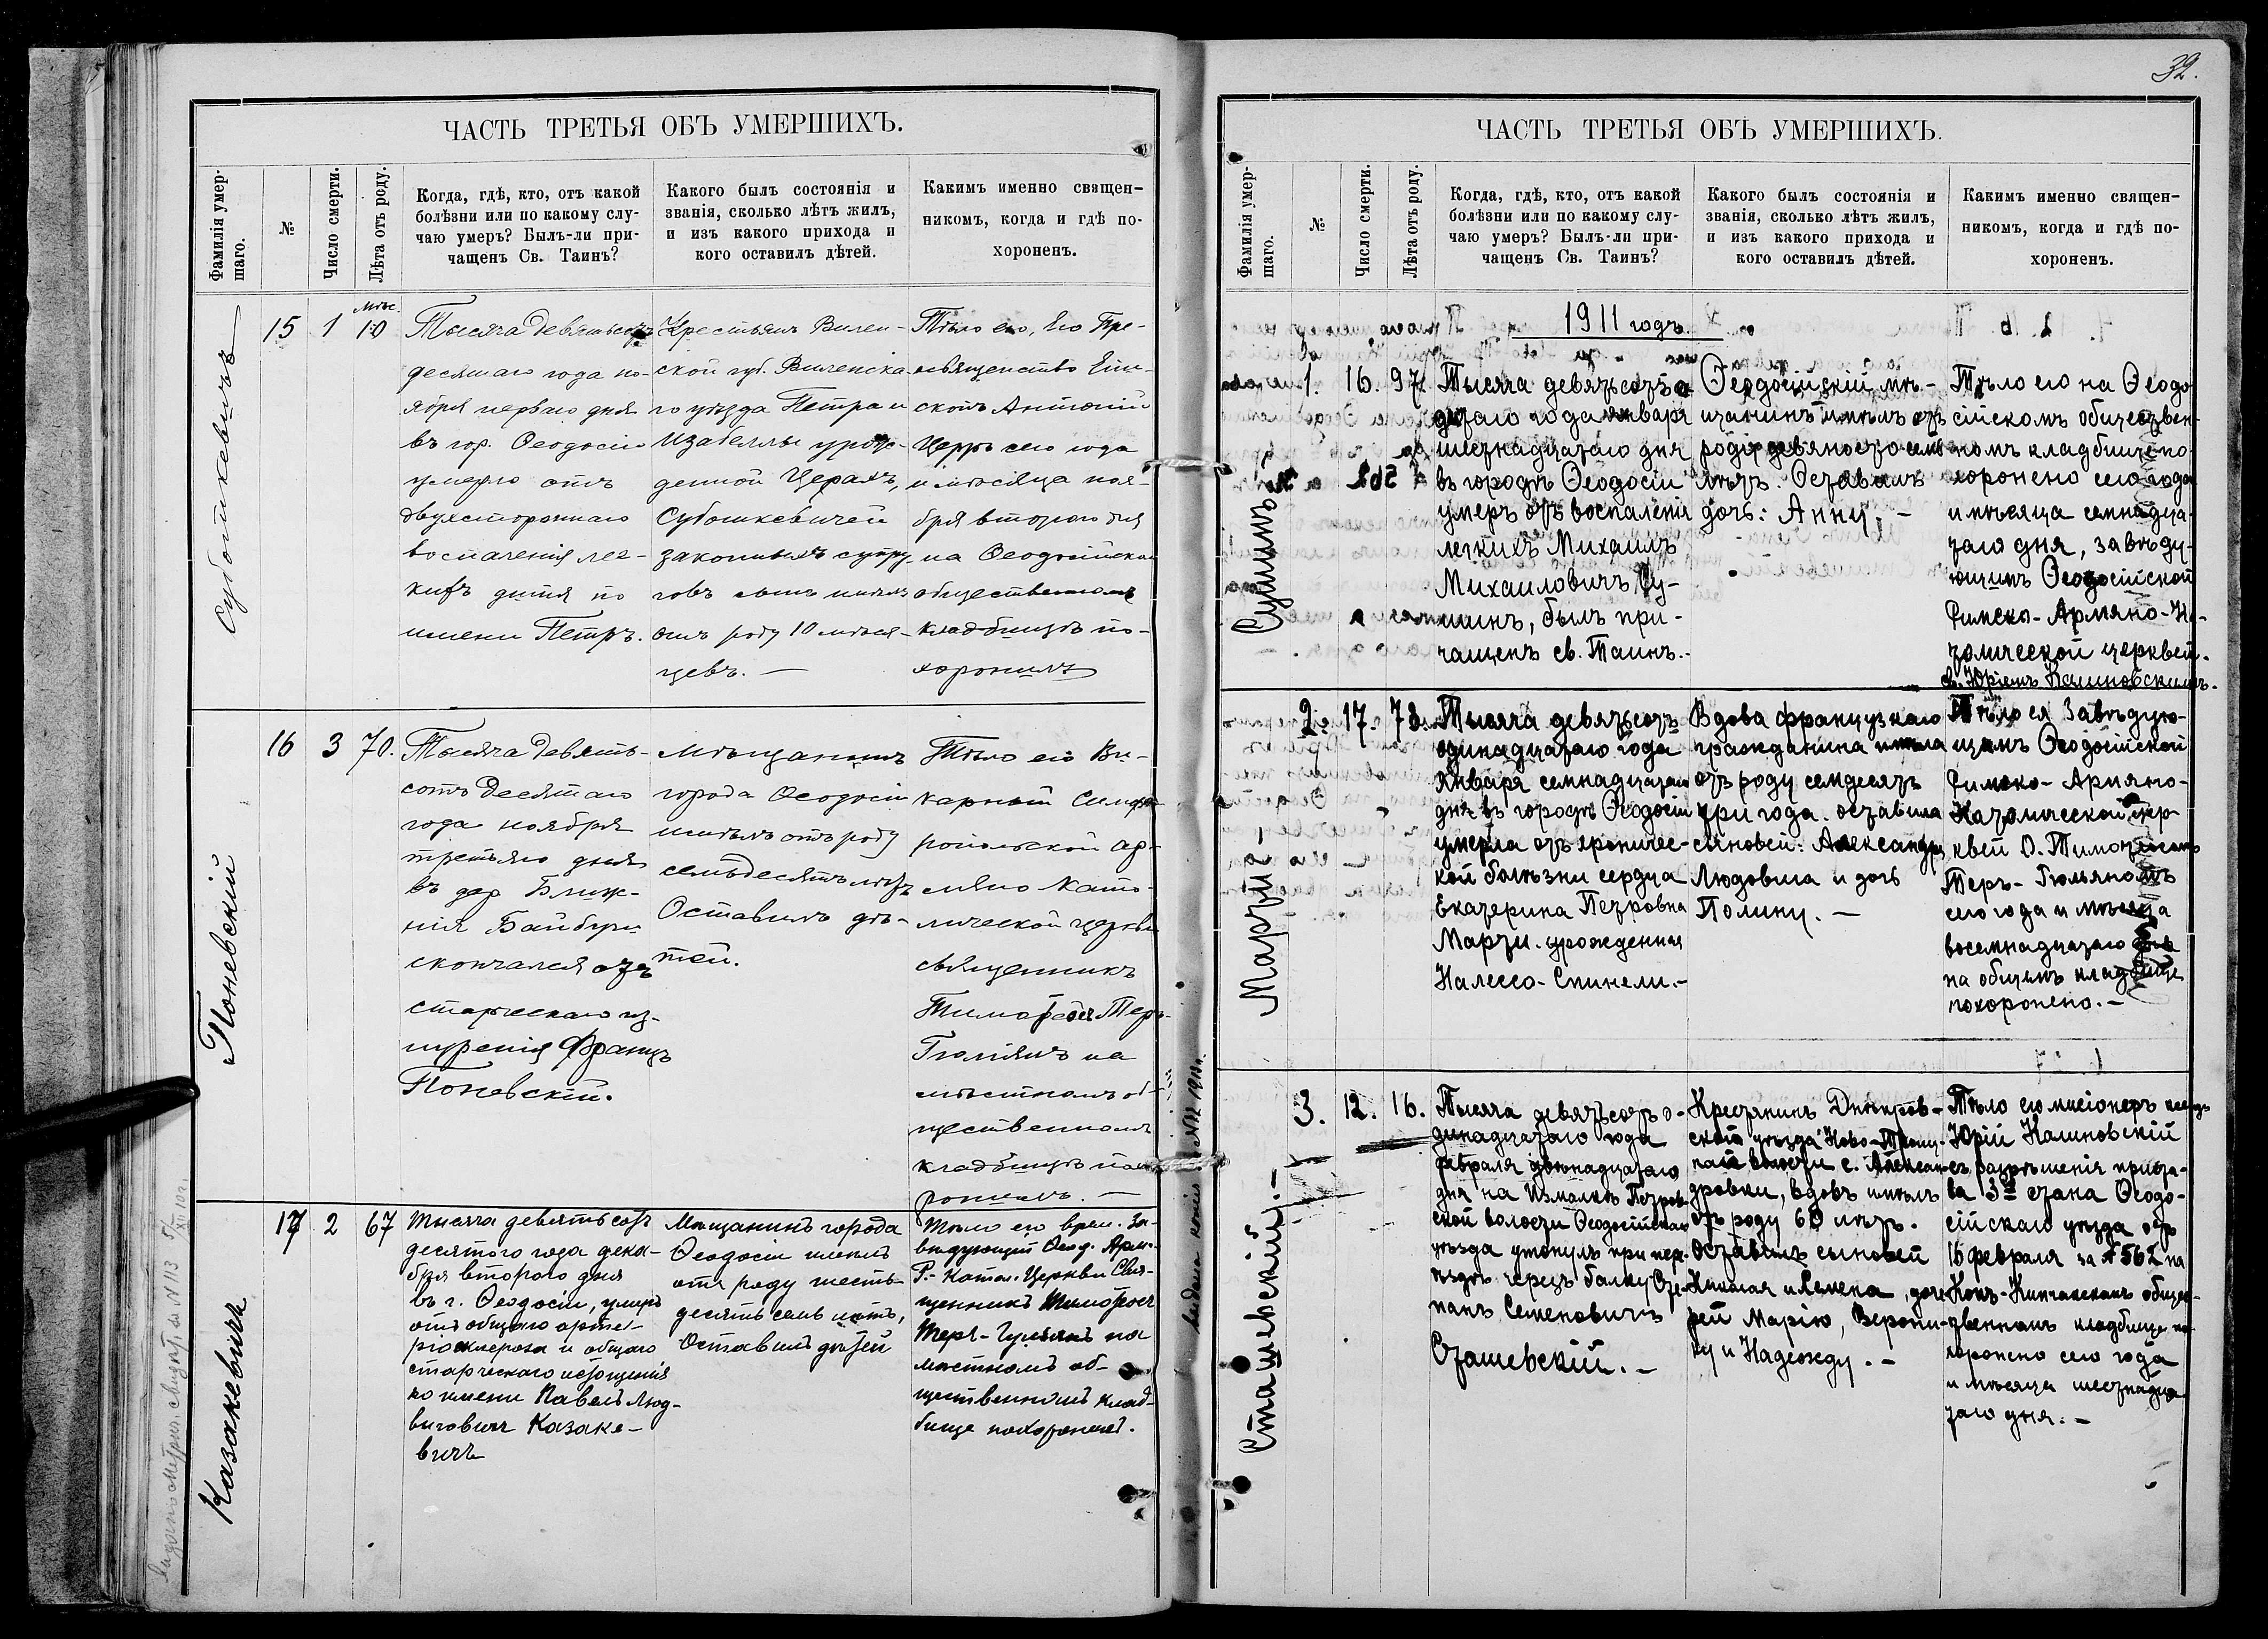 ЧАСТЬ ТРЕТЬЯ ОБЪ УМЕРШИХЪ.
Фамилія умер-
шаго.
№
Число смерти.
Лѣта отъ роду.
Когда, гдѣ, кто, отъ какой
болѣзни или по какому слу-
чаю умеръ? Былъ-ли при-
чащенъ Св. Таинъ?
Какого былъ состоянія и
званія, сколько лѣтъ жилъ,
и изъ какого прихода и
кого оставилъ дѣтей.
Какимъ именно священ-
никомъ, когда и гдѣ по-
хороненъ.
15
1
мѣс.
10
Тысяча девятьсотъ
десятаго года но-
ября перваго дня
въ гор. Ѳеодосіи
умерло отъ
двухсторонняго
воспаленія лег-
кихъ дитя по
имени Петръ.
Крестьянъ Вилен-
ской губ. Виленска-
го уѣзда Петра и
Изабеллы урож-
денной
законныхъ супру-
говъ сынъ имѣлъ
отъ роду 10 мѣся-
цевъ. —
Тѣло его, Его Пре-
освященство Епи-
скопъ Антоній
сего года
и мѣсяца ноя-
бря второго дня
на Ѳеодосійскомъ
общественномъ
кладбищѣ по-
хоронилъ
Поневскій
16
3
70.
Тысяча девять-
сотъ десятаго
года ноября
третьяго дня
въ дер Ближ-
нія Байбуги
скончался отъ
старческаго из-
нуренія Францъ
Поневскій.
Мѣщанинъ
города Ѳеодосіи
имѣлъ отъ роду
семьдесятъ лѣтъ
Оставилъ дѣ-
тей.
Тѣло его Ви-
карный Симфе-
ропольской ар-
мяно като-
лической церкви
священникъ
Тимофеосъ Теръ-
Гюліянъ на
мѣстномъ об-
щественномъ
кладбищѣ похо-
ронилъ. —
Казакевичъ
17
2
67
Тысяча девятьсотъ
десятого года дека-
бря второго дня
въ г. Ѳеодосіи, умеръ
отъ общаго арте-
ріосклероза и общаго
старческаго истощенія
по имени Павелъ Люд-
виговичъ Казаке-
вичъ
Мѣщанинъ города
Ѳеодосіи имѣлъ
отъ роду шесть-
десять семь лѣтъ,
Оставилъ дѣтей
Тѣло его врем. за-
вѣдующій Ѳеод. Арм.-
Р.- Катол. Церкви Свя-
щенникъ Тимофеосъ
Теръ-Гульянъ на
мѣстномъ об-
щественномъ клад-
бище похоронилъ.
32.
ЧАСТЬ ТРЕТЬЯ ОБЪ УМЕРШИХЪ.
Фамилія умер-
шаго.
№
Число смерти.
Лѣта отъ роду.
Когда, гдѣ, кто, отъ какой
болѣзни или по какому слу-
чаю умеръ? Былъ-ли при-
чащенъ Св. Таинъ?
Какого былъ состоянія и
званія, сколько лѣтъ жилъ,
и изъ какого прихода и
кого оставилъ дѣтей.
Какимъ именно священ-
никомъ, когда и гдѣ по-
хороненъ.
1911 годъ.
1.
16.
97.
Тысяча девятьсотъ
года января
шестнадцатаго дня
въ городѣ Ѳеодосіи
умеръ отъ воспаленія
легкихъ Михаилъ
Михаиловичъ Су-
шинъ, былъ при-
чащенъ св. Таинъ.-
Ѳеодосійскій мѣ-
щанинъ имѣлъ отъ
роду девяносто семь
лѣтъ. Оставилъ
дочь: Анну. —
Тѣло его на Ѳеодо-
сійскомъ обществен-
номъ кладбищѣ по-
хоронено сего года
и мѣсяца семнадца-
таго дня, завѣду-
ющимъ Ѳеодосійской
Римско-Армяно-Ка-
толической церквей.
Юріемъ Калиновскимъ.
2.
17.
73.
Тысяча девятьсотъ
одинадцатаго года
января семнадцатаго
дня въ городѣ Ѳеодосіи
умерла отъ хроничес-
кой болѣзни сердца
Екатерина Петровна
Марти. урожденная
Налессо-Спинели.-
Вдова французкаго
гражданина имѣла
отъ роду семдесятъ
три года. оставила
сыновей: Александра
Людовика и дочь
Полину. —
Тѣло ея Завѣдую-
щимъ Ѳеодосійской
Римско-Армяно-
Католической цер-
квей О. Тимоѳеосомъ
Теръ-Гюльяномъ
сего года и мѣсяца
восемнадцатаго дня
на общемъ кладбище
похоронено. —
Сташевскій. —
3.
12.
16.
Тысяча девятьсотъ о-
динадцатаго года
февраля двѣнадцатаго
дня на Петров-
ской волости Ѳеодосійскаго
уѣзда утонулъ при пере-
ѣздѣ черезъ балку Сте-
панъ Семеновичъ
Сташевскій. —
Крестьянинъ Днѣпров-
скаго уѣзда Ново-
волости с. Алексан-
дровки, вдовъ имѣлъ
отъ роду 60 лѣтъ.
Оставилъ сыновей
и Семена, доче-
рей Марію, Верони-
ку и Надежду. —
Тѣло его мисіонеръ ксендзъ
Юрій Калиновскій
съ разрѣшенія приста-
ва 3го стана Ѳеодо-
сійскаго уѣзда отъ
16 февраля за № 562 на
Копъ-Кипчакскомъ общес-
твенномъ кладбище по-
хоронено сего года
и мѣсяца шестнадца-
таго дня. —